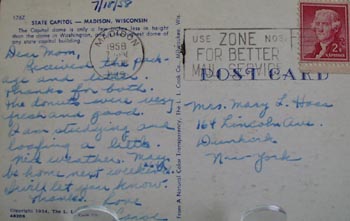 7/10/58
176Z
STATE CAPITOL — MADISON, WISCONSIN
The Capitol dome is only a few inches less in height
than the dome in Washington,
any one state capitol building.
MADISON
1958
USE ZONE NOS.
FOR BETTER
MAIL SERVICE
2¢
Dear Mom,
Received the pack-
age and letter.
Thanks for both.
The donuts were very
fresh and good.
I am studying and
loafing a little.
Nice weather. May
be home next weekend.
I will let you know.
Thanks. Love
POST CARD
Mrs. Mary L. Hoss
164 Lincoln Ave.
Dunkirk
New York
From A Natural Color Transparency, The L. L. Cook Co., Milwaukee, Wis.
Copyright 1954, The L. L.